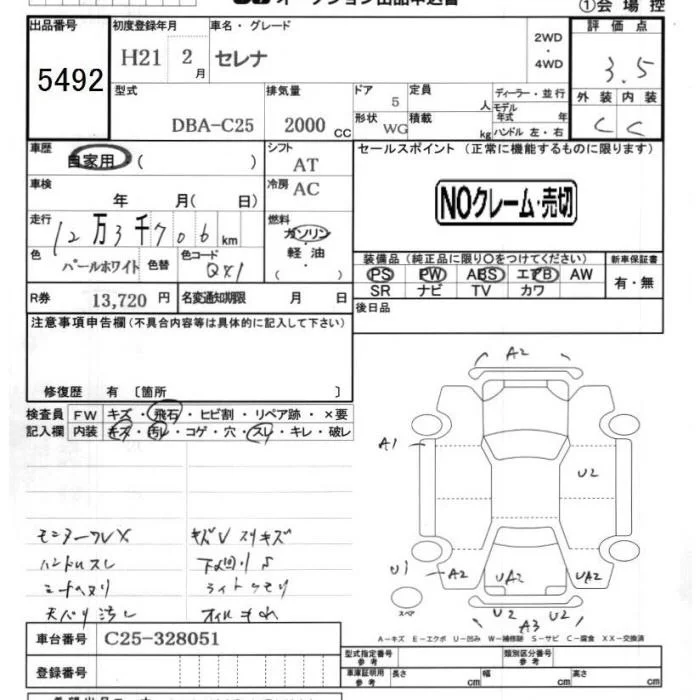 オークション出品申込書
①会場控
出品番号
5492
初度登録年月
H21 2 月
車名・グレード
セレナ
2WD
・
4WD
評価点
3.5
型式
DBA-C25
排気量
2000 CC
ドア 5
形状 WG
定員 人
積載 kg
ディーラー・並行
モデル年式 年
ハンドル 左・右
外装 内装
C C
車歴
自家用 ( )
シフト AT
車検
年 月( 日)
冷房 AC
走行
12万3千706km
燃料
ガソリン
・軽油・
( )
色
パールホワイト
色替
色コード
QX1
R券 13,720 円
名変通知期限 月 日
セールスポイント (正常に機能するものに限ります)
NOクレーム・売切
装備品 (純正品に限り〇をつけてください)
新車保証書
PS PW ABS エアB AW
SR ナビ TV カワ
有・無
後日品
注意事項申告欄(不具合内容等は具体的に記入して下さい)
修復歴 有 〔箇所 〕
検査員記入欄
FW キズ・飛石・ヒビ割・リペア跡・×要
内装 キズ・汚レ・コゲ・穴・スレ・キレ・破レ
ハンドルスレ
A2
A1
U2
U1
A2 UA2 UA2
U2 U2
A3
スペア
A－キズ E－エクボ U－凹み W－補修跡 S－サビ C－腐食 XX－交換済
車台番号 C25-328051
登録番号
型式指定番号 参考
類別区分番号 参考
車庫証明用 参考
長さ cm 幅 cm 高さ cm